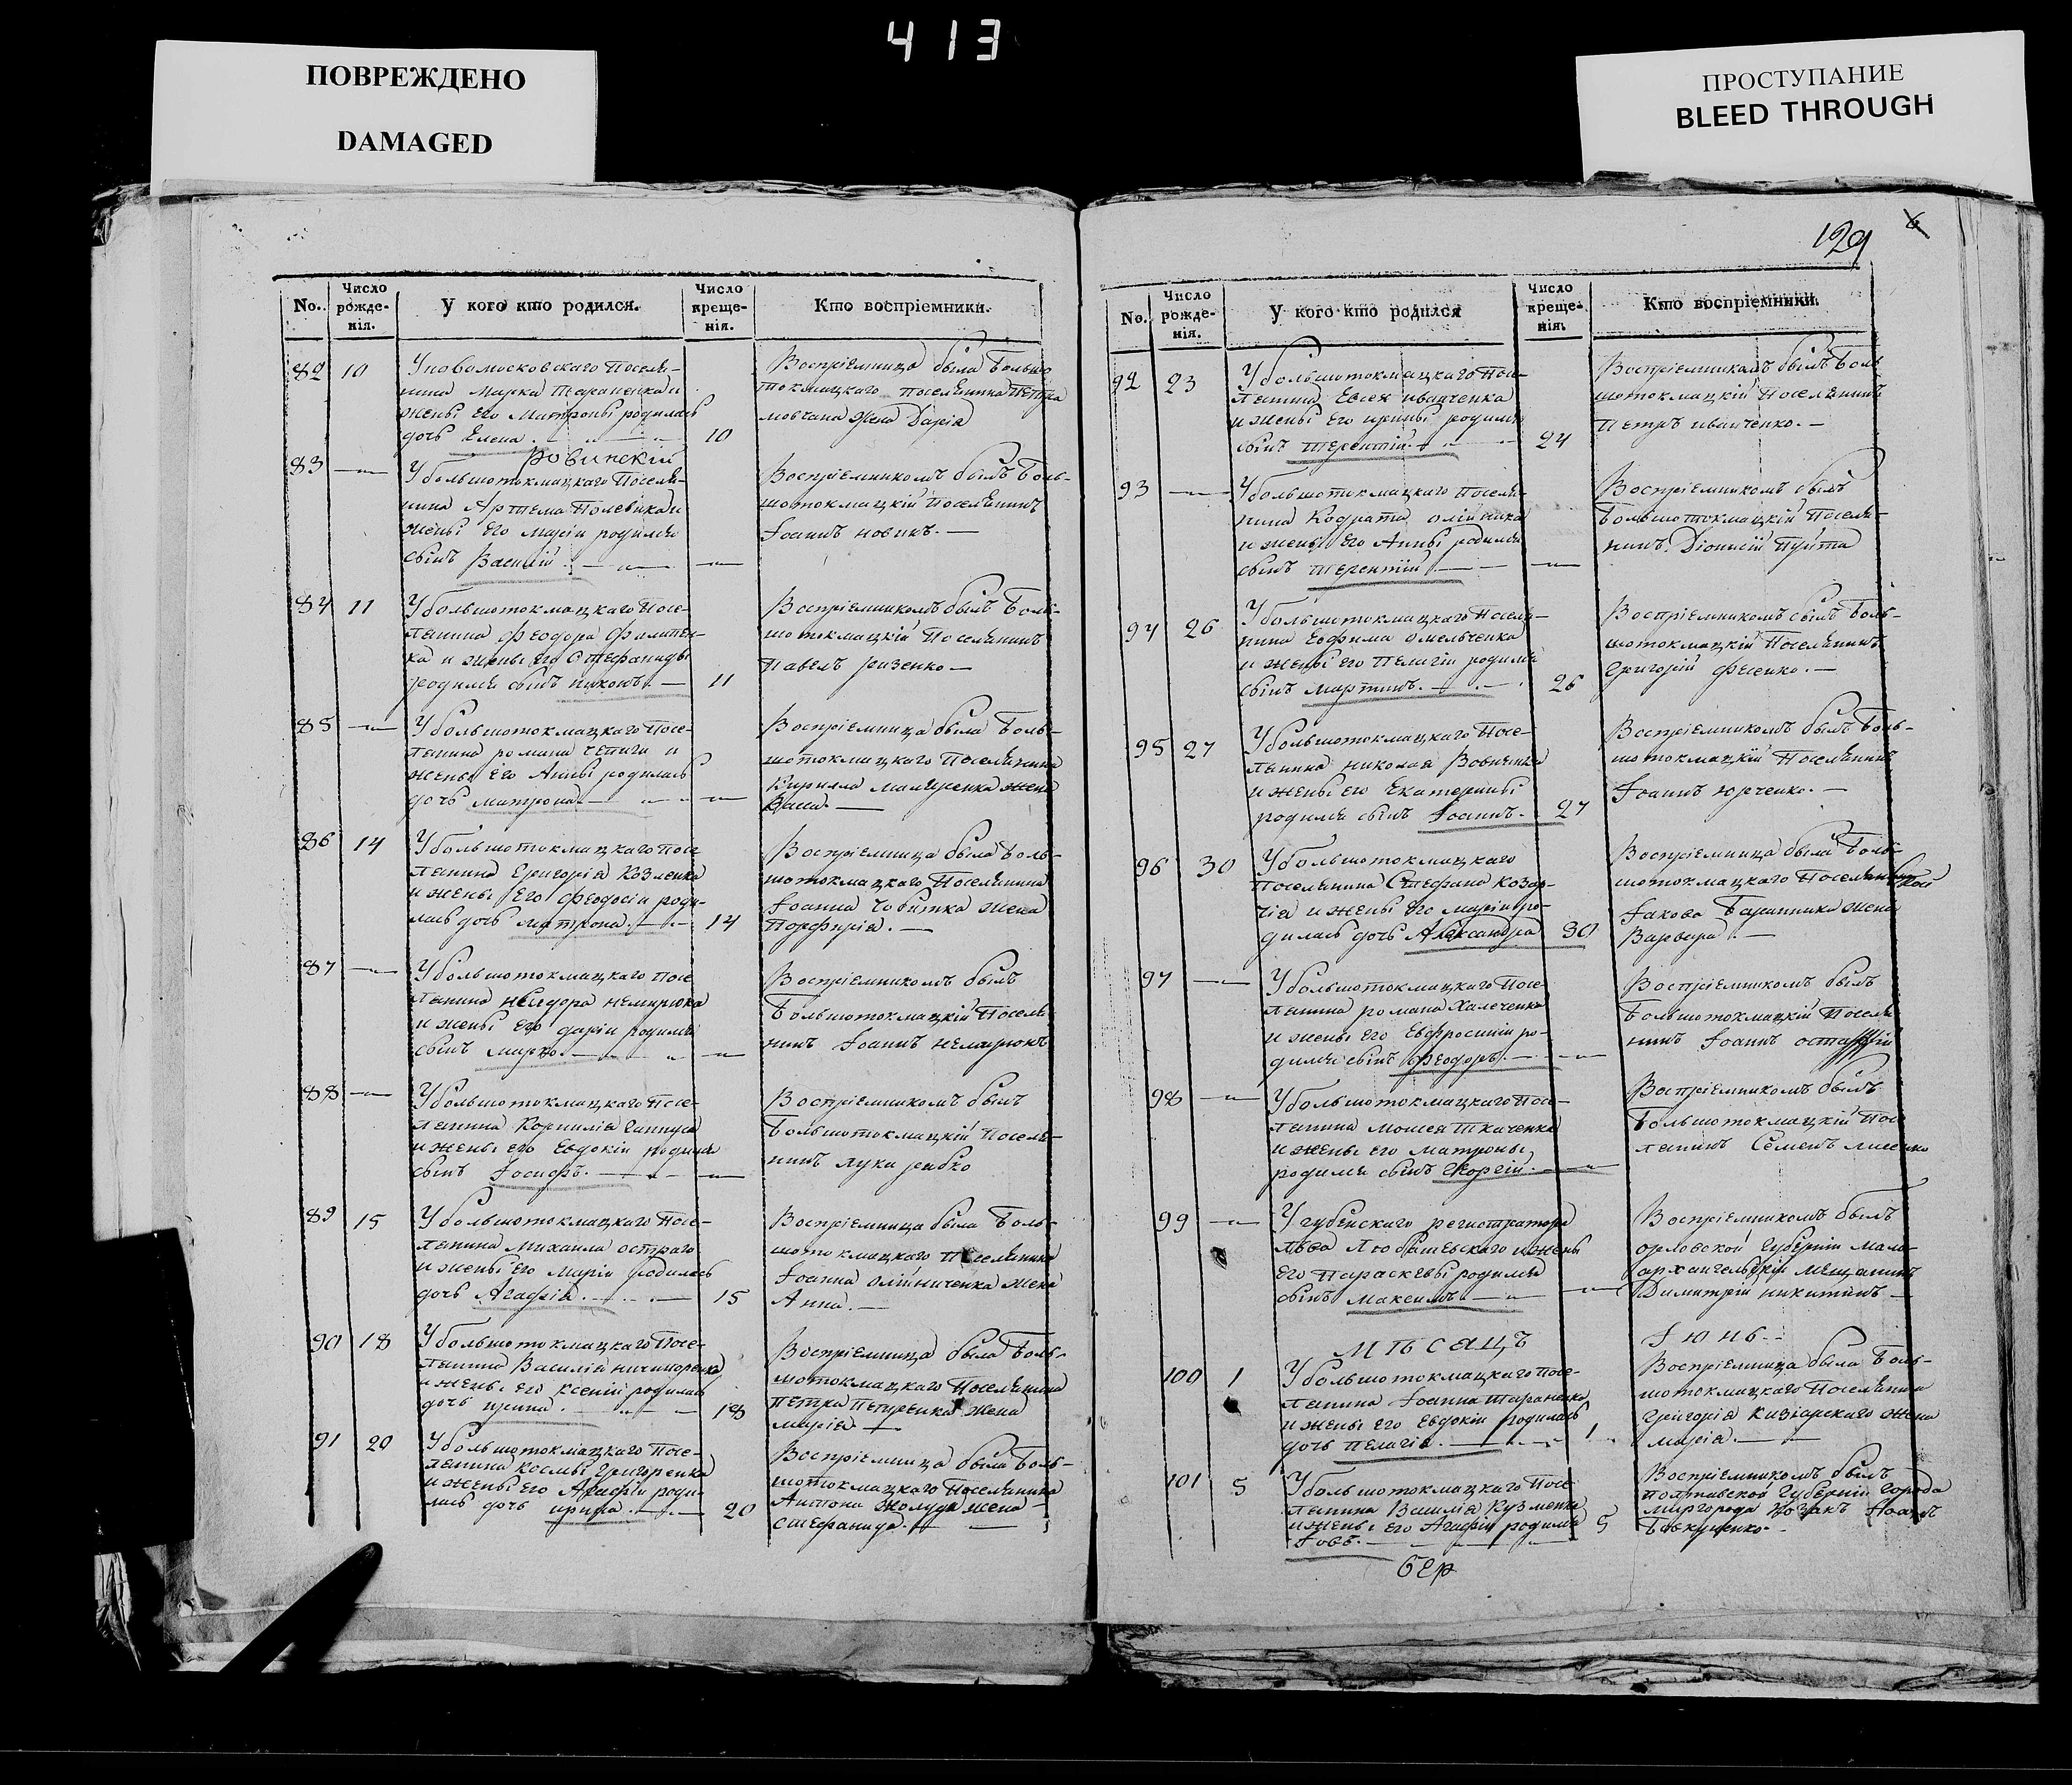 413
ПОВРЕЖДЕНО
DAMAGED
ПРОСТУПАНИЕ
BLEED THROUGH
129
No. Число рожденія. У кого кто родился. Число крещенія. Кто воспріемники.
82 10
Уновомосковского Поселя-
нина Марка Тараненка и
жены Его Матроны родилась
дочь Елена. 10
Воспріемница была Большо
токмацкаго поселянина Петра
мовчана Жена Дарія
83
Ровинскій
Убольшотокмацкаго Поселя-
нина Артема Полевика и
жены Его Маріи родился
сынъ Василій
Воспріемникомъ былъ Боль-
шотокмацкій Поселянинъ
Іоаннъ новикъ.
84 11
Убольшотокмацкаго Посе-
лянина Феодора Филипен-
ка и жены его Стефаниды
родился сынъ никонъ. 11
Воспріемникомъ былъ Боль-
шотокмацкій Поселянинъ
Павелъ ризенко
85
Убольшотокмацкаго Посе-
лянина романа чепиги и
жены Его Анны родилась
дочь матрона.
Воспріемница была Боль-
шотокмацкаго Поселянина
Кирилла жена
Васса.
86 14
Убольшотокмацкаго Посе
лянина Григорія Козленка
и жены Его Феодосіи роди-
лась дочь матрона. 14
Воспріемница была Боль-
шотокмацкаго Поселянина
Іоанна Чобитка жена
Порфирія.
87
Убольшотокмацкаго Посе
лянина немирюка
и жены Его даріи родился
сынъ марко.
Воспріемникомъ былъ
Большотокмацкій Поселя
нинъ Іоаннъ немирюкъ
88
Убольшотокмацкаго Посе-
лянина Корнилія Ганнуса
и жены его Евдокіи родился
сынъ Іосифъ.
Воспріемникомъ былъ
Большотокмацкій Поселя-
нинъ лука рибко
89 15
Убольшотокмацкаго Посе-
лянина Михаила остраго
и жены Его Маріи родилась
дочь Агафія. 15
Воспріемница была Боль-
шотокмацкаго Поселянина
Іоанна олійниченка жена
Анна.
90 18
Убольшотокмацкаго Посе-
лянина Василія ничипоренка
и жены его Ксеніи родилась
дочь ирина. 18
Воспріемница была Боль-
шотокмацкаго Поселянина
Петра Петренка жена
марія
91 20
Убольшотокмацкаго Посе-
лянина космы Григоренка
и жены его Агафіи роди-
лась дочь ирина. 20
Воспріемница была Боль-
шотокмацкаго Поселянина
Антона жолудя жена
Стефанида.
No. Число рожденія. У кого кто родился Число крещенія. Кто воспріемники.
92 23
Убольшотокмацкаго Посе-
лянина Евсея иванченка
и жены Его ирины родился
сынъ терентій. 24
Воспріемникомъ былъ Боль
шотокмацкій Поселянинъ
Петръ иванченко.
93
Убольшотокмацкаго Поселя-
нина Кодрата олійника
и жены Его Анны родился
сынъ терентій
Воспріемникомъ былъ
Большотокмацкій Поселя-
нинъ Діонисій
94 26
Убольшотокмацкаго Поселя-
нина Евфима омельченка
и жены его Пелагіи родился
сынъ мартинъ. 26
Воспріемникомъ былъ Боль-
шотокмацкій Поселянинъ
Григорій Фесенко.
95 27
Убольшотокмацкаго Посе-
лянина николая Вовченка
и жены его Екатерины
родился сынъ Іоаннъ. 27
Воспріемникомъ былъ Боль-
шотокмацкій Поселянинъ
Іоаннъ юрченко.
96 30
Убольшотокмацкаго
Поселянина Стефана козар-
чія и жены Его маріи ро-
дилась дочь Александра 30
Воспріемница была Боль-
шотокмацкаго
Іакова Баранника жена
Варвара.
97
Убольшотокмацкаго Посе
лянина романа Халеченка
и жены Его Евфросиніи ро-
дился сынъ Феодоръ.
Воспріемникомъ былъ
Большотокмацкій Поселя
нинъ Іоаннъ
98
Убольшотокмацкаго Посе-
лянина Моисея Ткаченка
и жены его матроны
родился сынъ Георгій.
Воспріемникомъ былъ
Большотокмацкій Посе
лянинъ Семенъ лисенко
99
Угубенскаго регистратора
льва Любашевскаго и жены
его Параскевы родился
сынъ Максимъ
Воспріемникомъ былъ
орловской Губерніи Мало-
архангельскій мещанинъ
Димитрій никитинъ
МѢСЯЦЪ ІЮНЬ
100 1
Убольшотокмацкаго Посе-
лянина Іоанна Тараненка
и жены его Евдокіи родилась
дочь Пелагія. 1
Воспріемница была Боль-
шотокмацкаго Поселянина
Григорія Кизіарскаго жена
марія.
101 5
Убольшотокмацкаго Посе
лянина Василія Кузменка
и жены его Агафіи родился
Іовъ. 5
Воспріемникомъ былъ
Полтавской Губерніи города
миргорода козакъ Іоаннъ